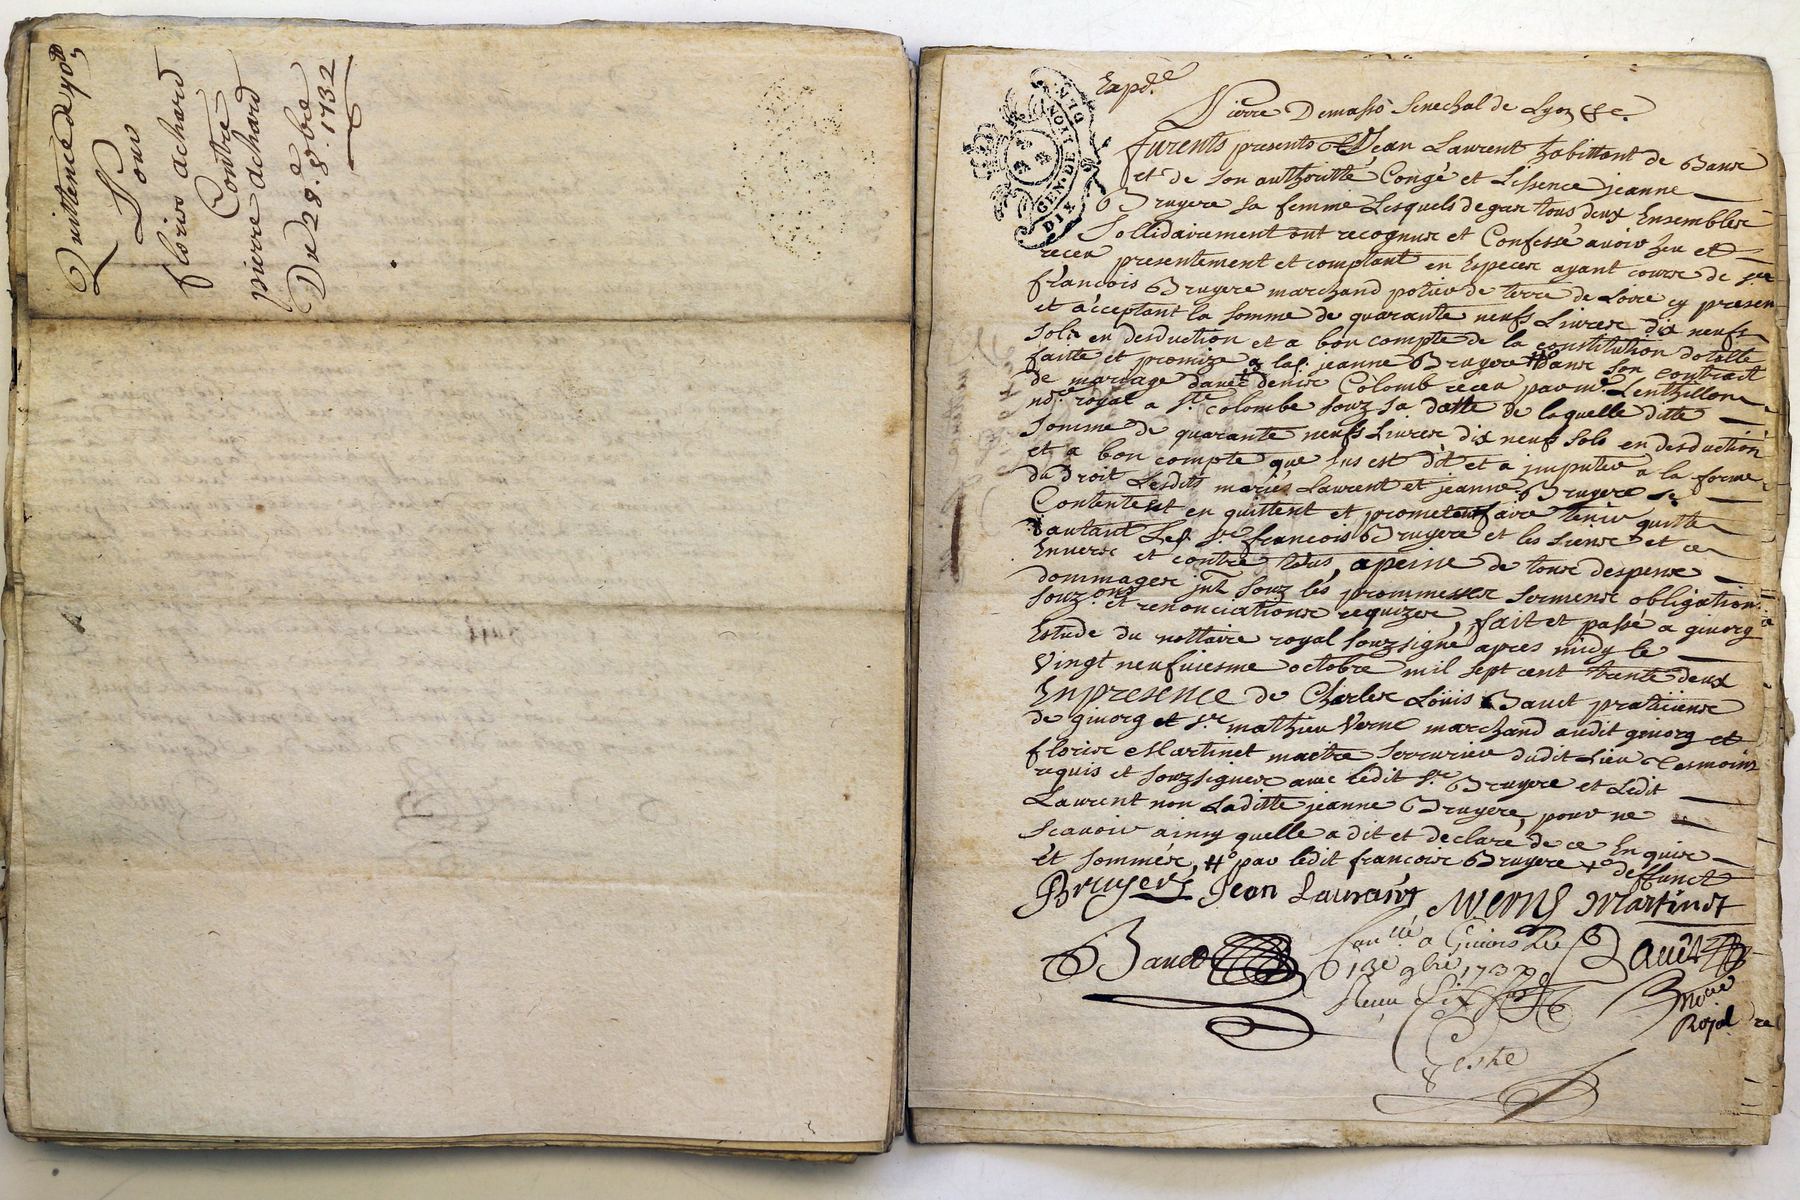 Quittence de 40ᵗᵗ
Pour
floris achard
Contre
pierre achard
Du 28.e 8.bre
1732
GEN·DE LION
DIX DIN
Expd.e
Pierre Demasso Senechal de Lyon &c.
furents presents Jean Laurent habittant de Bans
et de son authoritté Congé et Lissence jeanne
Bruyere sa femme Lesquels de gan tous deux Ensembles
Sollidairement ont recognus et Confessé avoir heu et
receu presentement et comptant en Especes ayant cours de sieur
francois Bruyere marchand potier de terre de Loire cy present
et acceptant la somme de quarante neufs Livres dix neufs
sols en desduction et a bon compte de la constitution dotalle
faitte et promize a lad. jeanne Bruyere dans son contract
de mariage davec denis Colomb receu par me. Lenthillon
nore. royal a ste. Colombe souz sa datte de laquelle ditte
Somme de quarante neufs Livres dix neuf sols en desduction
et a bon compte que sus est dit et a imputer a la forme
du droit Lesdits mariés Laurent et jeanne Bruyere se
Contentent en quittent et promettent faire tenir quitte
d'autant Led. sr. francois Bruyere et les siens et ce
Envers et contre tous, apeine de tous despens
dommages jnt. souz les prommesses serments obligations
souz.ons et renonciations requizes, fait et passé a givorg
Estude du nottaire royal souzsigné apres midy le
Vingt neufviesme octobre mil sept cent trente deux
En presence de Charles Louis Bauet praticiens
de givorg et sr. mathieu Verne marchand audit givorg et
floris Martinet maitre serrurier dudit Lieu tesmoins
requis et souzsignes avec ledit sr. Bruyere et Ledit
Laurent non Laditte jeanne Bruyere, pour ne
scavoir ainsy quelle a dit et declaré de ce Enquise
et sommés, par ledit francois Bruyere deffunct
Bruyere, Jean Laurant, M Verne Martinet
Bauet Conllé. a Givors Le Bauet
13e 9bre 1732 nore
Receu Six sols Royal
Geste